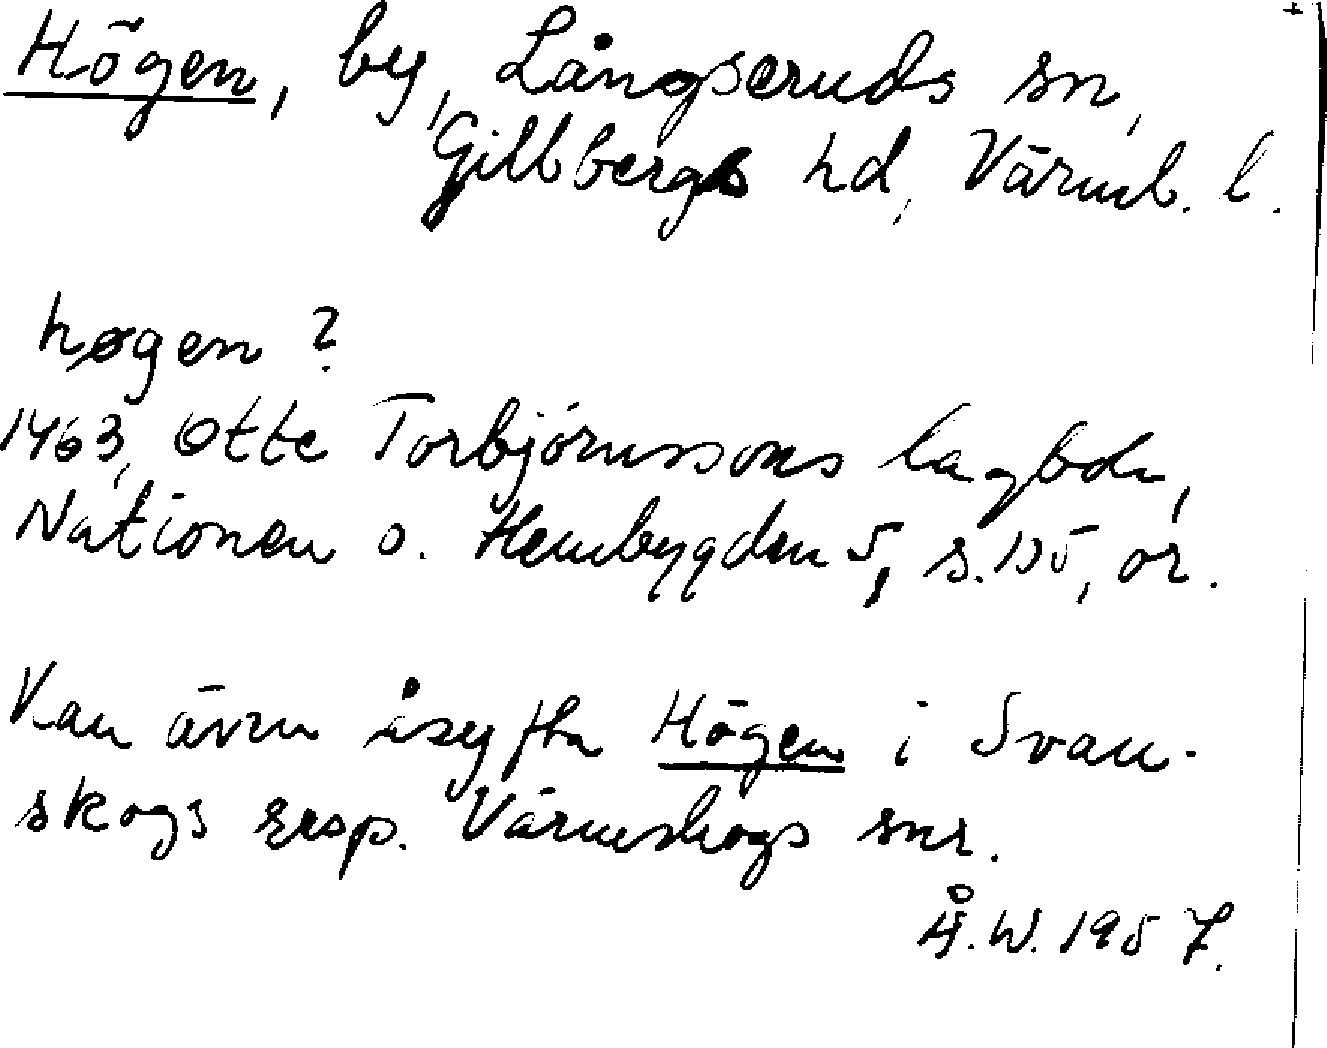 Högen, by, Långseruds sn,
Gillbergs hd, Värml. l.
høgen ?
1463, Otte Torbjörnssons lagbok,
Nationen o. Hembygden 5, s. 135, or.
Kan även åsyfta Högen i Svan-
skogs resp. Värmskogs snr.
Å.W. 1957.